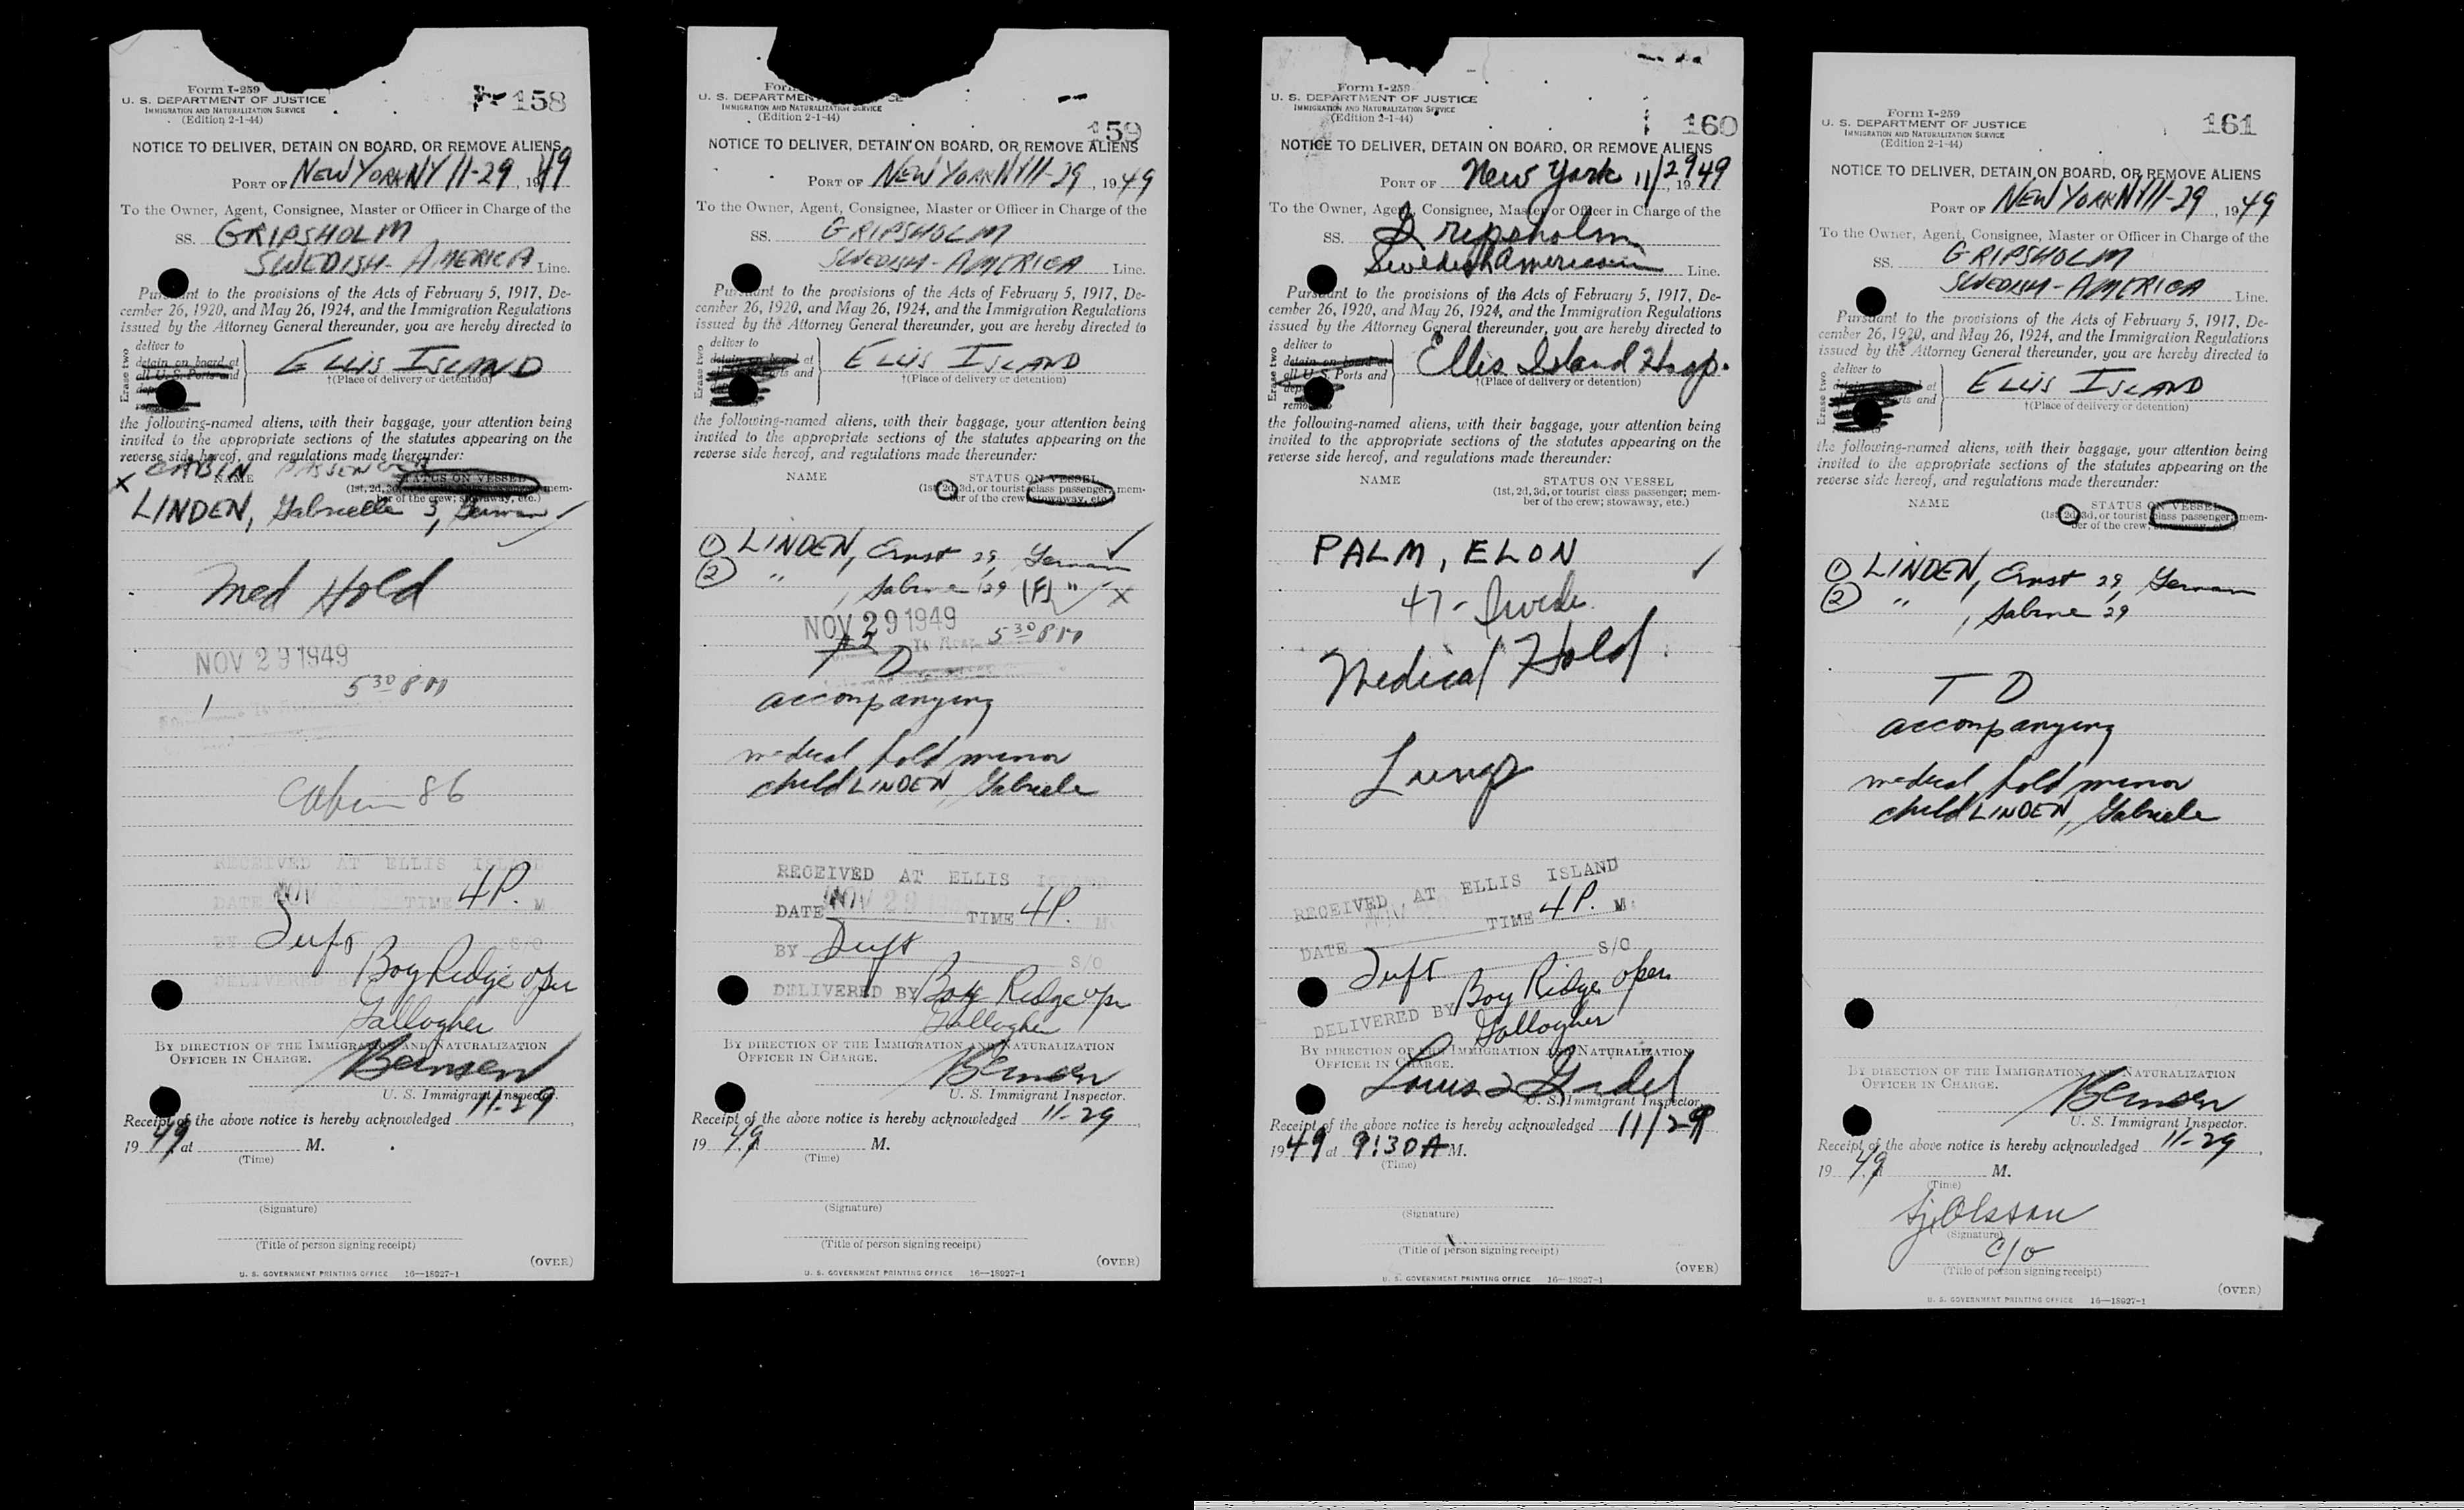 Form I-259
U. S. DEPARTMENT OF JUSTICE
IMMIGRATION AND NATURALIZATION SERVICE
(Edition 2-1-44)
158
NOTICE TO DELIVER, DETAIN ON BOARD, OR REMOVE ALIENS
PORT OF NEW YORK NY 11-29, 1949
To the Owner, Agent, Consignee, Master or Officer in Charge of the
SS. GRIPSHOLM
SWEDISH-AMERICA Line.
Pursuant to the provisions of the Acts of February 5, 1917, De-
cember 26, 1920, and May 26, 1924, and the Immigration Regulations
issued by the Attorney General thereunder, you are hereby directed to
Erase two
deliver to
detain on board at
all U. S. Ports and
ELLIS ISLAND
†(Place of delivery or detention)
the following-named aliens, with their baggage, your attention being
invited to the appropriate sections of the statutes appearing on the
reverse side hereof, and regulations made thereunder:
CABIN PASSENGER
NAME STATUS ON VESSEL
(1st, 2d, 3d, mem-
ber of the crew; stowaway, etc.)
x LINDEN, Gabrielle 3, German ✓
Med Hold
NOV 29 1949
5 30 PM
1
Cabin 86
RECEIVED AT ELLIS ISLAND
DATE NOV 29 TIME 4P. M.
BY Tuft S/O
DELIVERED BY Bay Ridge Oper
Gallagher
BY DIRECTION OF THE IMMIGRATION AND NATURALIZATION
OFFICER IN CHARGE.
U. S. Immigrant Inspector.
Receipt of the above notice is hereby acknowledged 11-29,
1949 at M.
(Time)
(Signature)
(Title of person signing receipt)
(OVER)
U. S. GOVERNMENT PRINTING OFFICE 16—18927-1
Form
U. S. DEPARTMENT CE
IMMIGRATION AND NATURALIZATION SERVICE
(Edition 2-1-44)
159
NOTICE TO DELIVER, DETAIN ON BOARD, OR REMOVE ALIENS
PORT OF NEW YORK NY 11-29, 1949
To the Owner, Agent, Consignee, Master or Officer in Charge of the
SS. GRIPSHOLM
SWEDISH-AMERICA Line.
Pursuant to the provisions of the Acts of February 5, 1917, De-
cember 26, 1920, and May 26, 1924, and the Immigration Regulations
issued by the Attorney General thereunder, you are hereby directed to
Erase two
deliver to
detain on board at
ts and
ELLIS ISLAND
†(Place of delivery or detention)
the following-named aliens, with their baggage, your attention being
invited to the appropriate sections of the statutes appearing on the
reverse side hereof, and regulations made thereunder:
NAME STATUS ON VESSEL
(1st, 2d, 3d, or tourist class passenger; mem-
ber of the crew; stowaway, etc.)
① LINDEN, Ernst 29, German ✓
② " , Sabine 29 (F) " ✓ x
NOV 29 1949
#2 5 30 PM
T D
accompanying
medical hold minor
child LINDEN, Gabriele
RECEIVED AT ELLIS ISLAND
DATE NOV 29 TIME 4P. M.
BY Tuft S/O
DELIVERED BY Bay Ridge Opr
Gallagher
BY DIRECTION OF THE IMMIGRATION AND NATURALIZATION
OFFICER IN CHARGE.
U. S. Immigrant Inspector.
Receipt of the above notice is hereby acknowledged 11-29,
1949 M.
(Time)
(Signature)
(Title of person signing receipt)
(OVER)
U. S. GOVERNMENT PRINTING OFFICE 16—18927-1
Form I-259
U. S. DEPARTMENT OF JUSTICE
IMMIGRATION AND NATURALIZATION SERVICE
(Edition 2-1-44)
160
NOTICE TO DELIVER, DETAIN ON BOARD, OR REMOVE ALIENS
PORT OF New York 11/29 1949
To the Owner, Agent, Consignee, Master or Officer in Charge of the
SS. Gripsholm
Swedish American Line.
Pursuant to the provisions of the Acts of February 5, 1917, De-
cember 26, 1920, and May 26, 1924, and the Immigration Regulations
issued by the Attorney General thereunder, you are hereby directed to
Erase two
deliver to
detain on board at
all U. S. Ports and
dep
remo
Ellis Island Hosp.
†(Place of delivery or detention)
the following-named aliens, with their baggage, your attention being
invited to the appropriate sections of the statutes appearing on the
reverse side hereof, and regulations made thereunder:
NAME STATUS ON VESSEL
(1st, 2d, 3d, or tourist class passenger; mem-
ber of the crew; stowaway, etc.)
PALM, ELON ✓
47 - Swede
Medical Hold
Lungs
RECEIVED AT ELLIS ISLAND
DATE TIME 4P. M.
Tuft S/O
DELIVERED BY Bay Ridge Open
Gallagher
BY DIRECTION OF THE IMMIGRATION AND NATURALIZATION
OFFICER IN CHARGE.
Louis
U. S. Immigrant Inspector.
Receipt of the above notice is hereby acknowledged 11/29
1949 at 9:30 A M.
(Time)
(Signature)
(Title of person signing receipt)
(OVER)
U. S. GOVERNMENT PRINTING OFFICE 16—18927-1
Form I-259
U. S. DEPARTMENT OF JUSTICE
IMMIGRATION AND NATURALIZATION SERVICE
(Edition 2-1-44)
161
NOTICE TO DELIVER, DETAIN ON BOARD, OR REMOVE ALIENS
PORT OF NEW YORK NY 11-29, 1949
To the Owner, Agent, Consignee, Master or Officer in Charge of the
SS. GRIPSHOLM
SWEDISH-AMERICA Line.
Pursuant to the provisions of the Acts of February 5, 1917, De-
cember 26, 1920, and May 26, 1924, and the Immigration Regulations
issued by the Attorney General thereunder, you are hereby directed to
Erase two
deliver to
at
ts and
ELLIS ISLAND
†(Place of delivery or detention)
the following-named aliens, with their baggage, your attention being
invited to the appropriate sections of the statutes appearing on the
reverse side hereof, and regulations made thereunder:
NAME STATUS ON VESSEL
(1st, 2d, 3d, or tourist class passenger; mem-
ber of the crew;
① LINDEN, Ernst 29, German
② " , Sabine 29
T D
accompanying
medical hold minor
child LINDEN, Gabriele
BY DIRECTION OF THE IMMIGRATION AND NATURALIZATION
OFFICER IN CHARGE.
U. S. Immigrant Inspector.
Receipt of the above notice is hereby acknowledged 11-29,
1949 M.
(Time)
Olsson
(Signature)
c/o
(Title of person signing receipt)
(OVER)
U. S. GOVERNMENT PRINTING OFFICE 16—18927-1